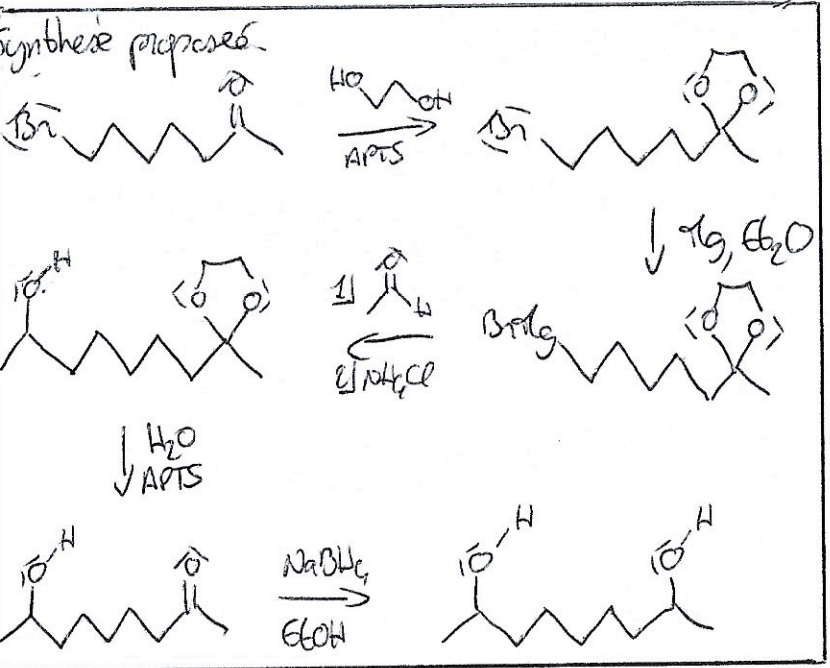 Synthèse proposée.
Br
O
HO
OH
APTS
Br
O
O
Mg, Et₂O
O
H
O
O
1)
O
H
2) NH₄Cl
BrMg
O
O
H₂O
APTS
O
H
O
NaBH₄
EtOH
O
H
O
H